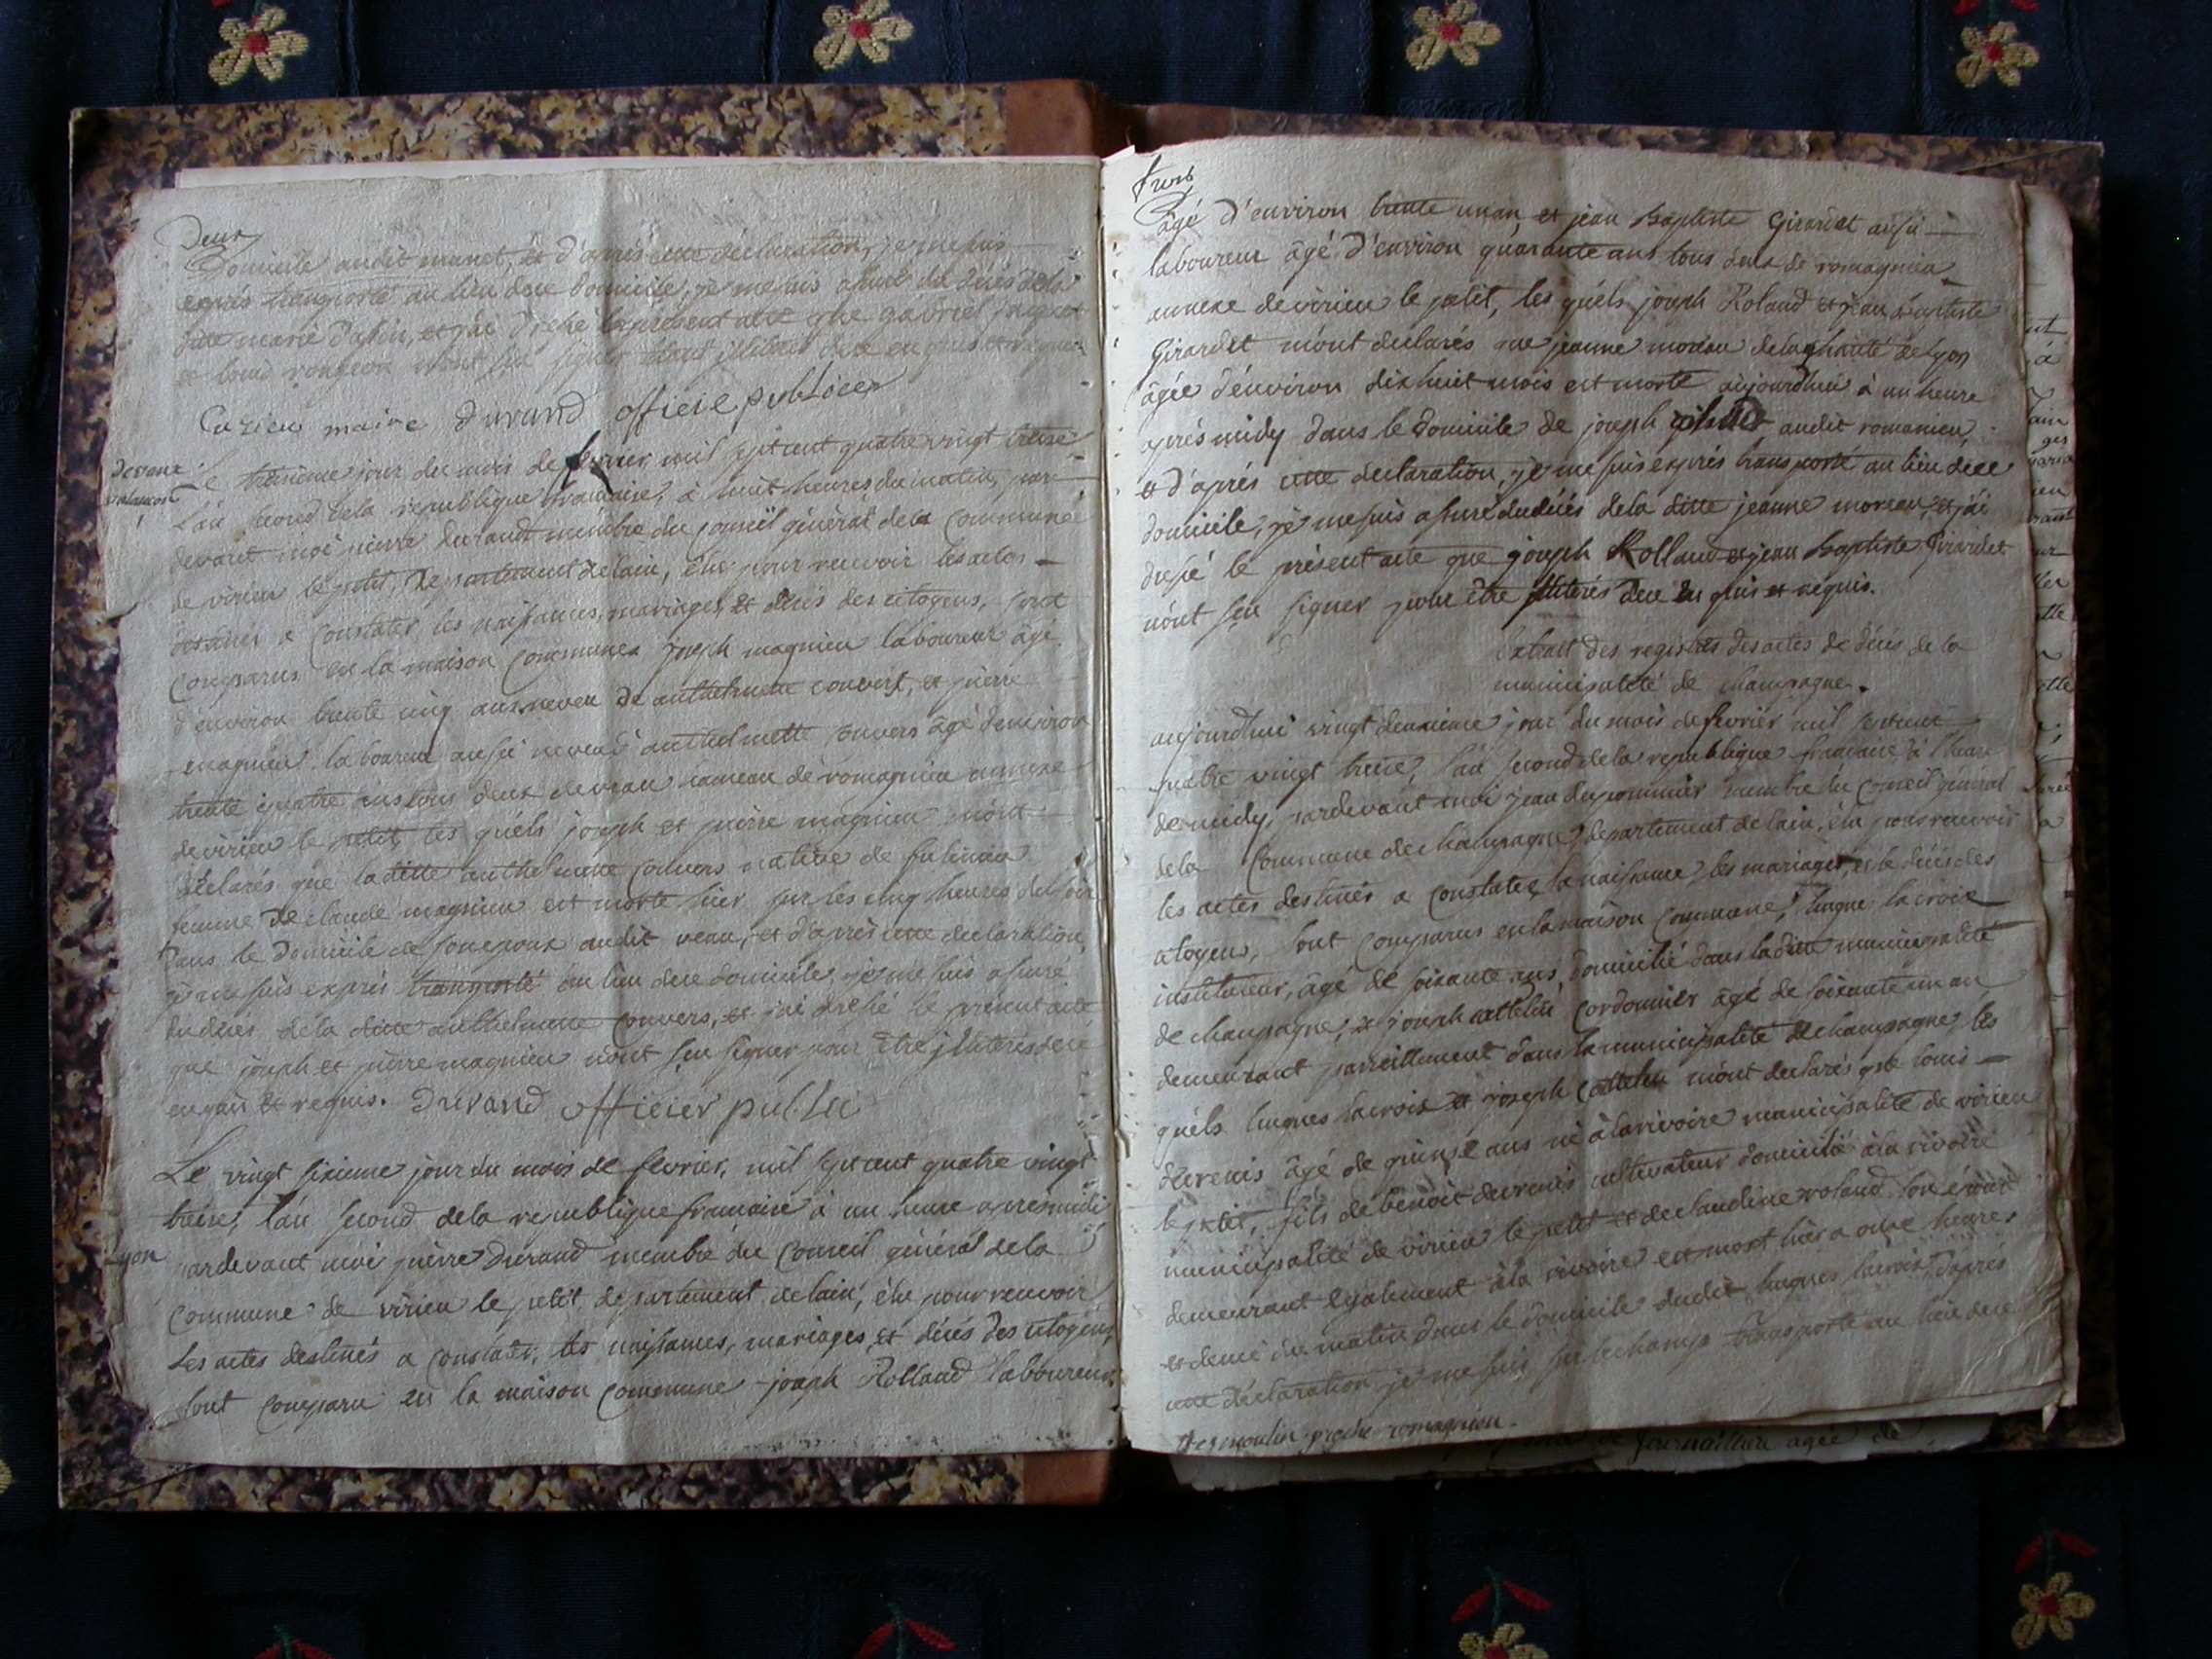 Deux
Domicile audit munet, et d'aprés cette déclaration, je me suis
exprés transporté au lieu dece domicile, je me suis assuré du décés dela
ditte marie et j'ai dressé le present acte que gabriel
et n'ont sçu signer étant illitérés dece enquis et requis
Cuzieu maire Durand officie publicer
devant
Le treisieme jour du mois de fevrier, mil sept cent quatre vingt treise
l'an second dela république francaise, à huit heures du matin, par
devant moi pierre durand membre du conseil général dela commune
de virieu le petit, departement delain, élu pour recevoir les actes
destinés a constater les naissances, mariages, et décés des citoyens, sont
comparus en la maison commune joseph magnieu laboureur âgé
d'environ trente cinq ans neveu de anthelmette convers, et pierre
magnieu laboureur aussi neveu d'anthelmette convers âgé d'environ
trente quatre ans tous deux de vean hameau de romagnieu annexe
de virieu le petit, les quéls joseph et pierre magnieu m'ont
déclarés que la ditte anthelmette convers native de
femme de claude magnieu est morte hier sur les cinq heures du soir
dans le domicile de son epoux audit vean, et d'aprés cette declaration,
je me suis exprés transporté au lieu dece domicile, je me suis assuré
du décés dela ditte anthelmette convers, et j'ai dressé le present acte
que joseph et pierre magnieu n'ont sçu signer pour être illiterés dece
enquis et requis. Durand officier public
Le vingt sixieme jour du mois de fevrier, mil sept cent quatre vingt
treise, l'an second dela republique francaise à un heure aprés midi
yon
pardevant moi pierre Durand membre du conseil général dela
commune de virieu le petit, departement delain, élu pour recevoir
les actes destinés a constater, les naissances, mariages, et décés des citoyens
sont comparu en la maison commune joseph Rolland laboureur
trois
âgé d'environ trente un an, et jean Baptiste Girardet aussi
laboureur âgé d'environ quarante ans tous deux de romagnieu
annexe de virieu le petit, les quéls joseph Roland et jean Baptiste
Girardet m'ont declarés que jeanne moreau dela charité de lyon
âgée d'environ dixhuit mois est morte aujourdhui à un heure
aprés midy dans le domicile de joseph audit romanieu,
et d'aprés cette declaration, je me suis exprés transporté au lieu dece
domicile, je me suis assuré du décés dela ditte jeanne moreau, et j'ai
dressé le présent acte que joseph Rolland et jean Baptiste Girardet
n'ont sçu signer pour être illitérés dece enquis et requis.
Extrait des registres des actes de décés de la
municipalité de champagne.
aujourdhui vingt deuxieme jour du mois de fevrier mil sept cent
quatre vingt treise, l'an second dela republique francaise, à l'heure
de midy, pardevant moi jean dupommier membre du conseil general
dela commune de champagne, departement delain, élu pour recevoir
les actes destinés a constater la naissance, les mariages, et le décés des
citoyens, sont comparus en la maison commune, hugue lacroix
instituteur, âgé de soixante ans, domicilié dans ladite municipalité
de champagne, et joseph cattelin cordonnier âgé de soixante un an,
demeurant pareillement dans la municipalité de champagne, les
quéls hugues lacroix et joseph cattelin m'ont declarés que louis
devenis âgé de quinze ans né à la rivoire municipalité de virieu
le petit, fils de benoit devenis cultivateur domicilié à la rivoire
municipalité de virieu le petit et de claudine roland son épouse
demeurant également à la rivoire est mort hier a onze heures
et demie du matin dans le domicile dudit hugues lacroix, d'aprés
cette déclaration je me suis sur le champ transporté au lieu dece
moulin proche romagnieu.